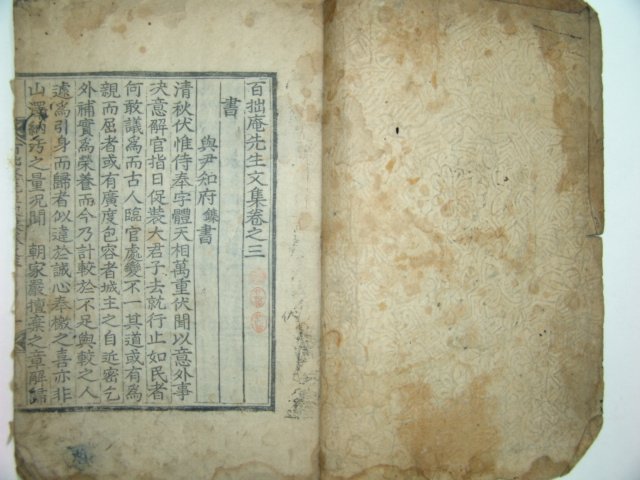 百拙庵先生文集卷之三
書
與尹知府鏶書
清秋伏惟侍奉字體天相萬重伏聞以意外事
決意解官指日促裝大君子去就行止如民者
何敢議爲而古人臨官處變不一其道或有爲
親而屈者或有廣度包容者城主之自近密乞
外補實爲榮養而今乃計較於不足與較之人
遽爲引身而歸者似違於誠心奉檄之喜亦非
山澤納汚之量況聞 朝家嚴擅棄之章解請
伏